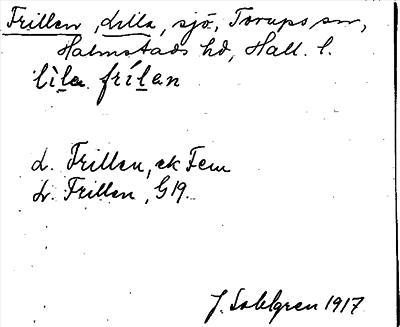 Frillen, Lilla, sjö, Torups sn,
Halmstads hd, Hall. l.
lìla frílan
d. Frillen, ek Fem
dr. Frillen, G19.
J. Sahlgren 1917